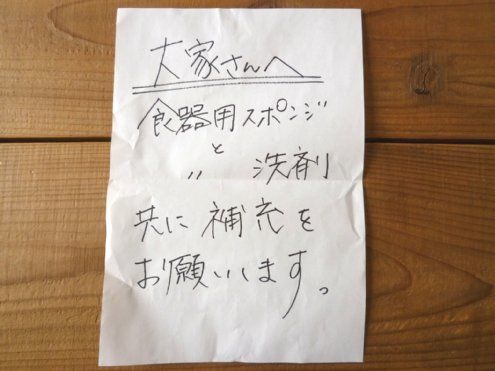 大家さんへ
食器用スポンジ
と
〃 洗剤
共に補充を
お願いします。